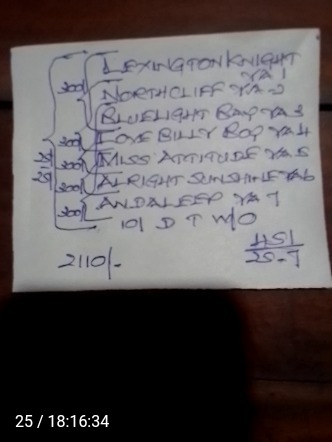 LEXINGTON KNIGHT
YA 1
NORTHCLIFF YA-2
BLUELIGHT BAY YA 3
LOVE BILLY BOY YA 4
MISS ATTITUDE YA 5
ALRIGHT SUNSHINE YA 6
ANDALEEP YA 7
10/ D T W/O
300
300
300
300
25
2110/-
451
25-7
25 / 18:16:34